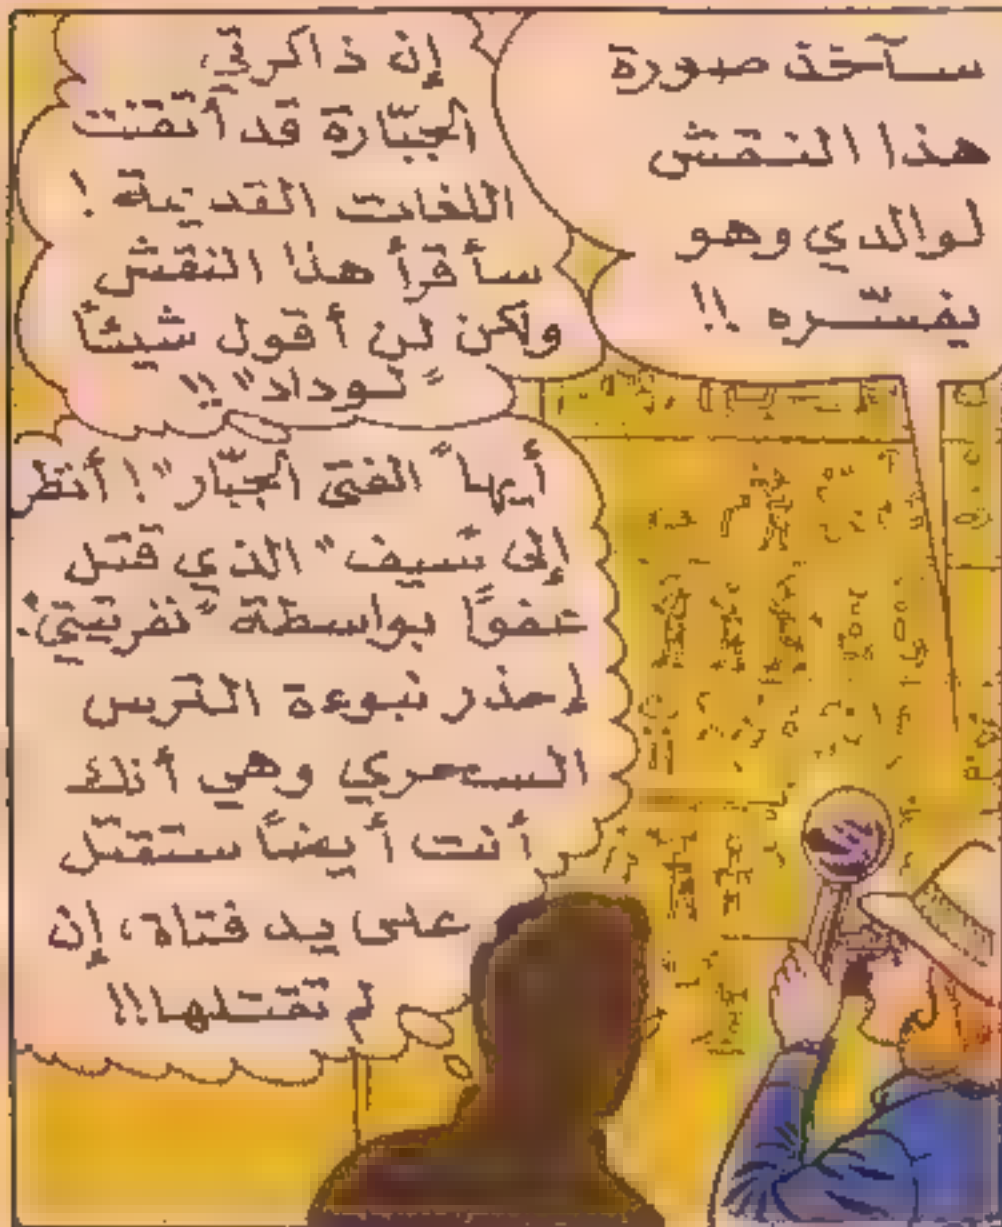 سآخذ صورة
هذا النقش
لوالدي وهو
يفسّره !!
إن ذاكرتي
الجبّارة قد أتقنت
اللغات القديمة !
سأقرأ هذا النقش
ولكن لن أقول شيئاً
"لوداد" !!
أيها "الفتى الجبّار" ! أنظر
إلى "سيف" الذي قتل
عفواً بواسطة "نفرتيتي".
إحذر نبوءة الترس
السحري وهي أنك
أنت أيضاً ستقتل
على يد فتاة، إن
لم تقتلها !!